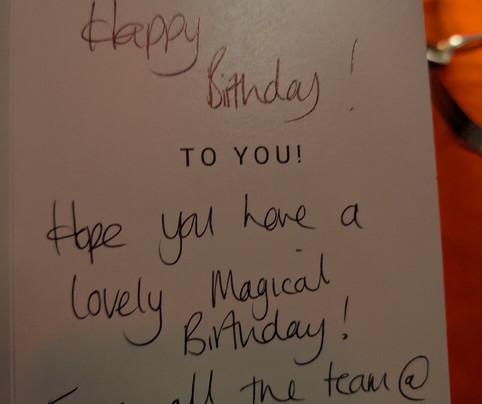 Happy
Birthday!
TO YOU!
Hope you have a
lovely Magical
Birthday!
all the team @